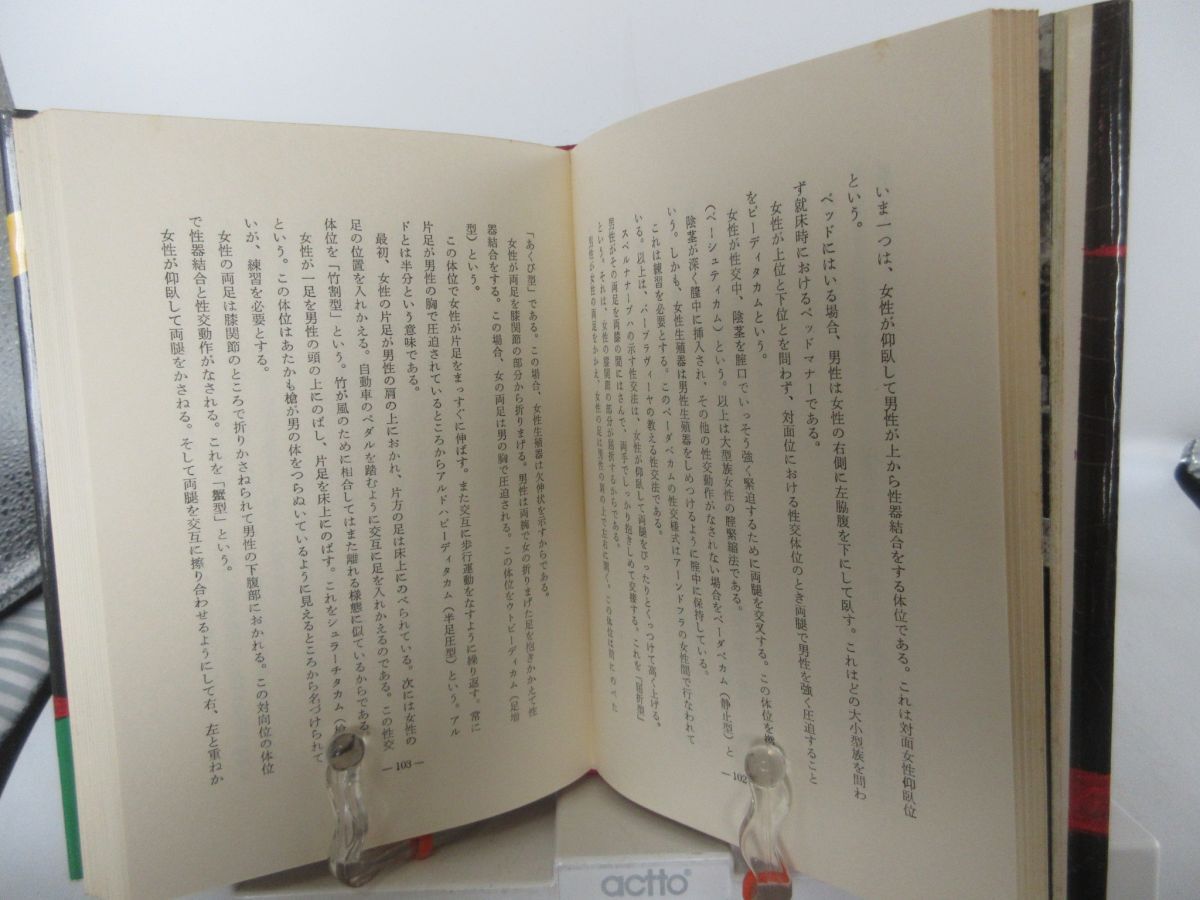 いま一つは、女性が仰臥して男性が上から性器結合をする体位である。これは対面女性仰臥位
という。
ベッドにはいる場合、男性は女性の右側に左脇腹を下にして臥す。これはどの大小型族を問わ
ず就床時におけるベッドマナーである。
女性が上位と下位とを問わず、対面位における性交体位のとき両腿で男性を強く圧迫すること
を、ピーディタカムという。
女性が性交中、陰茎を腟口でいっそう強く緊迫するために両腿を交叉する。この体位を
(ベーシュティカム)という。以上は大型族女性の腟緊縮法である。
陰茎が深く腟中に挿入され、その他の性交動作がなされない場合をベーダベカム(静止型)と
いう。しかも、女性生殖器は男性生殖器をしめつけるように腟中に保持している。
これは練習を必要とする。このベーダベカムの性交様式はアーンドフラの女性間で行なわれて
いる。以上は、バーブラヴィーヤの教える性交法である。
スベルナナーブハの示す性交法は、女性が仰臥して両腿をぴったりとくっつけて高く上げる。
男性がその両足を両膝の間にはさんで、両手でしっかり抱きしめて交接する。これを「屈折型」
という。それは、女性の膝関節の部分が屈折するからである。
男性が女性の両足をかかえ、女性の足は男性の肩の上で左右に開く。この体位は前にのべた
— 102
「あくび型」である。この場合、女性生殖器は欠伸状を示すからである。
女性が両足を膝関節の部分から折りまげる。男性は両腕で女の折りまげた足を抱きかかえて性
器結合をする。この場合、女の両足は男の胸で圧迫される。この体位をウトピーディカム(足増
型)という。
この体位で女性が片足をまっすぐに伸ばす。また交互に歩行運動をなすように繰り返す。常に
片足が男性の胸で圧迫されているところからアルドハピーディタカム(半足圧型)という。アル
ドとは半分という意味である。
最初、女性の片足が男性の肩の上におかれ、片方の足は床上にのべられている。次には女性の
足の位置を入れかえる。自動車のペダルを踏むように交互に足を入れかえるのである。この性交
体位を「竹割型」という。竹が風のために相合してはまた離れる様態に似ているからである
女性が一足を男性の頭の上にのばし、片足を床上にのばす。これをシュラーチタカム(
という。この体位はあたかも槍が男の体をつらぬいているように見えるところから名づけられて
いが、練習を必要とする。
女性の両足は膝関節のところで折りかさねられて男性の下腹部におかれる。この対向位の体位
で性器結合と性交動作がなされる。これを「蟹型」という。
女性が仰臥して両腿をかさねる。そして両腿を交互に擦り合わせるようにして右、左と重ねか
— 103 —
actto